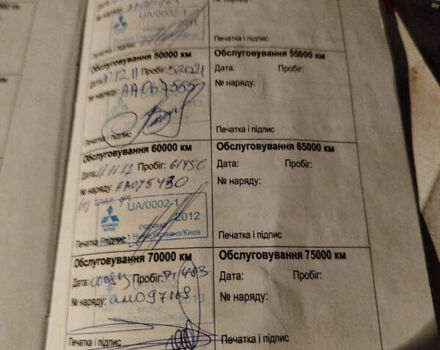 UA/0002-1
2012
Печатка і підпис
Обслуговування 50000 км
Обслуговування 55000 км
Дата: 12 11 Пробіг: 52021
Дата: Пробіг:
№ наряду: АА067555
№ наряду:
2013
Печатка і підпис
Печатка і підпис
Обслуговування 60000 км
Обслуговування 65000 км
Дата: 11.11.12 Пробіг:
Дата: Пробіг:
№ наряду: АА075430
№ наряду:
UA/0002-1
2012
Печатка і підпис
Печатка і підпис
Обслуговування 70000 км
Обслуговування 75000 км
Дата: Пробіг: 71483
Дата: Пробіг:
№ наряду:
№ наряду:
2013
Печатка і підпис
Печатка і підпис